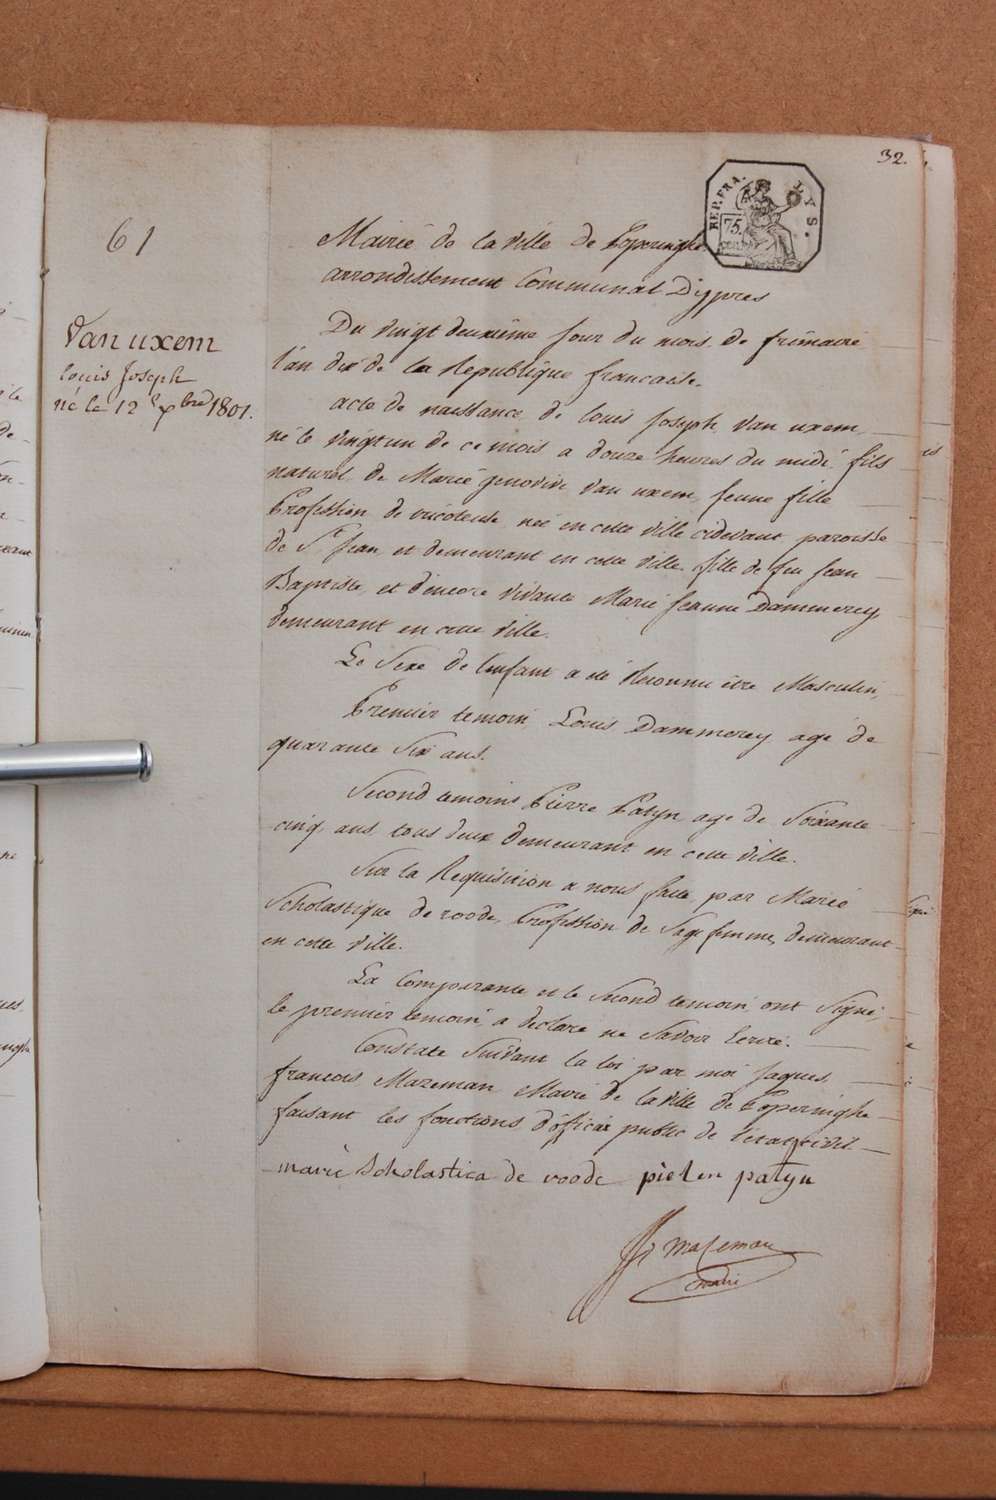 32.
REP. FRA.
LYS.
75.
CENT
61
Mairie de la ville de Poperinghe
arrondissement Communal D'ypres
Van uxem
louis Joseph
né le 12 Xbre 1801.
Du vingt deuxième jour du mois de frimaire
l'an dix de la Republique francaise.
acte de naissance de louis Joseph Van uxem,
né le vingt un de ce mois a douze heures du midi fils
naturel de Marie genovive van uxem jeune fille
Profession de tricoteuse, née en cette ville cidevant paroisse
de St Jean et demeurant en cette ville fille de feu Jean
Baptiste et d'encore vivante Marie Jeanne Dammerey
demeurant en cette ville.
Le Sexe de l'enfant a été Reconnu être Masculin,
Premier temoin, Louis Dammerey agé de
quarante Six ans.
Second temoins Pierre Patyn agé de Soixante
cinq ans tous deux demeurant en cette ville.
Sur la Requisition a nous faite par Marie
Scholastique de roode, Profession de Sage femme, demeurant
en cette ville.
La Comparante et le Second temoin ont Signé,
le premier temoin a declaré ne Savoir Ecrire.
Constaté Suivant la loi par moi Jaques
francois Mazeman Maire de la ville de Poperinghe
faisant les fonctions d'officier public de l'etat civil
marie Scholastica de roode pieter patyn
Mazeman
maire